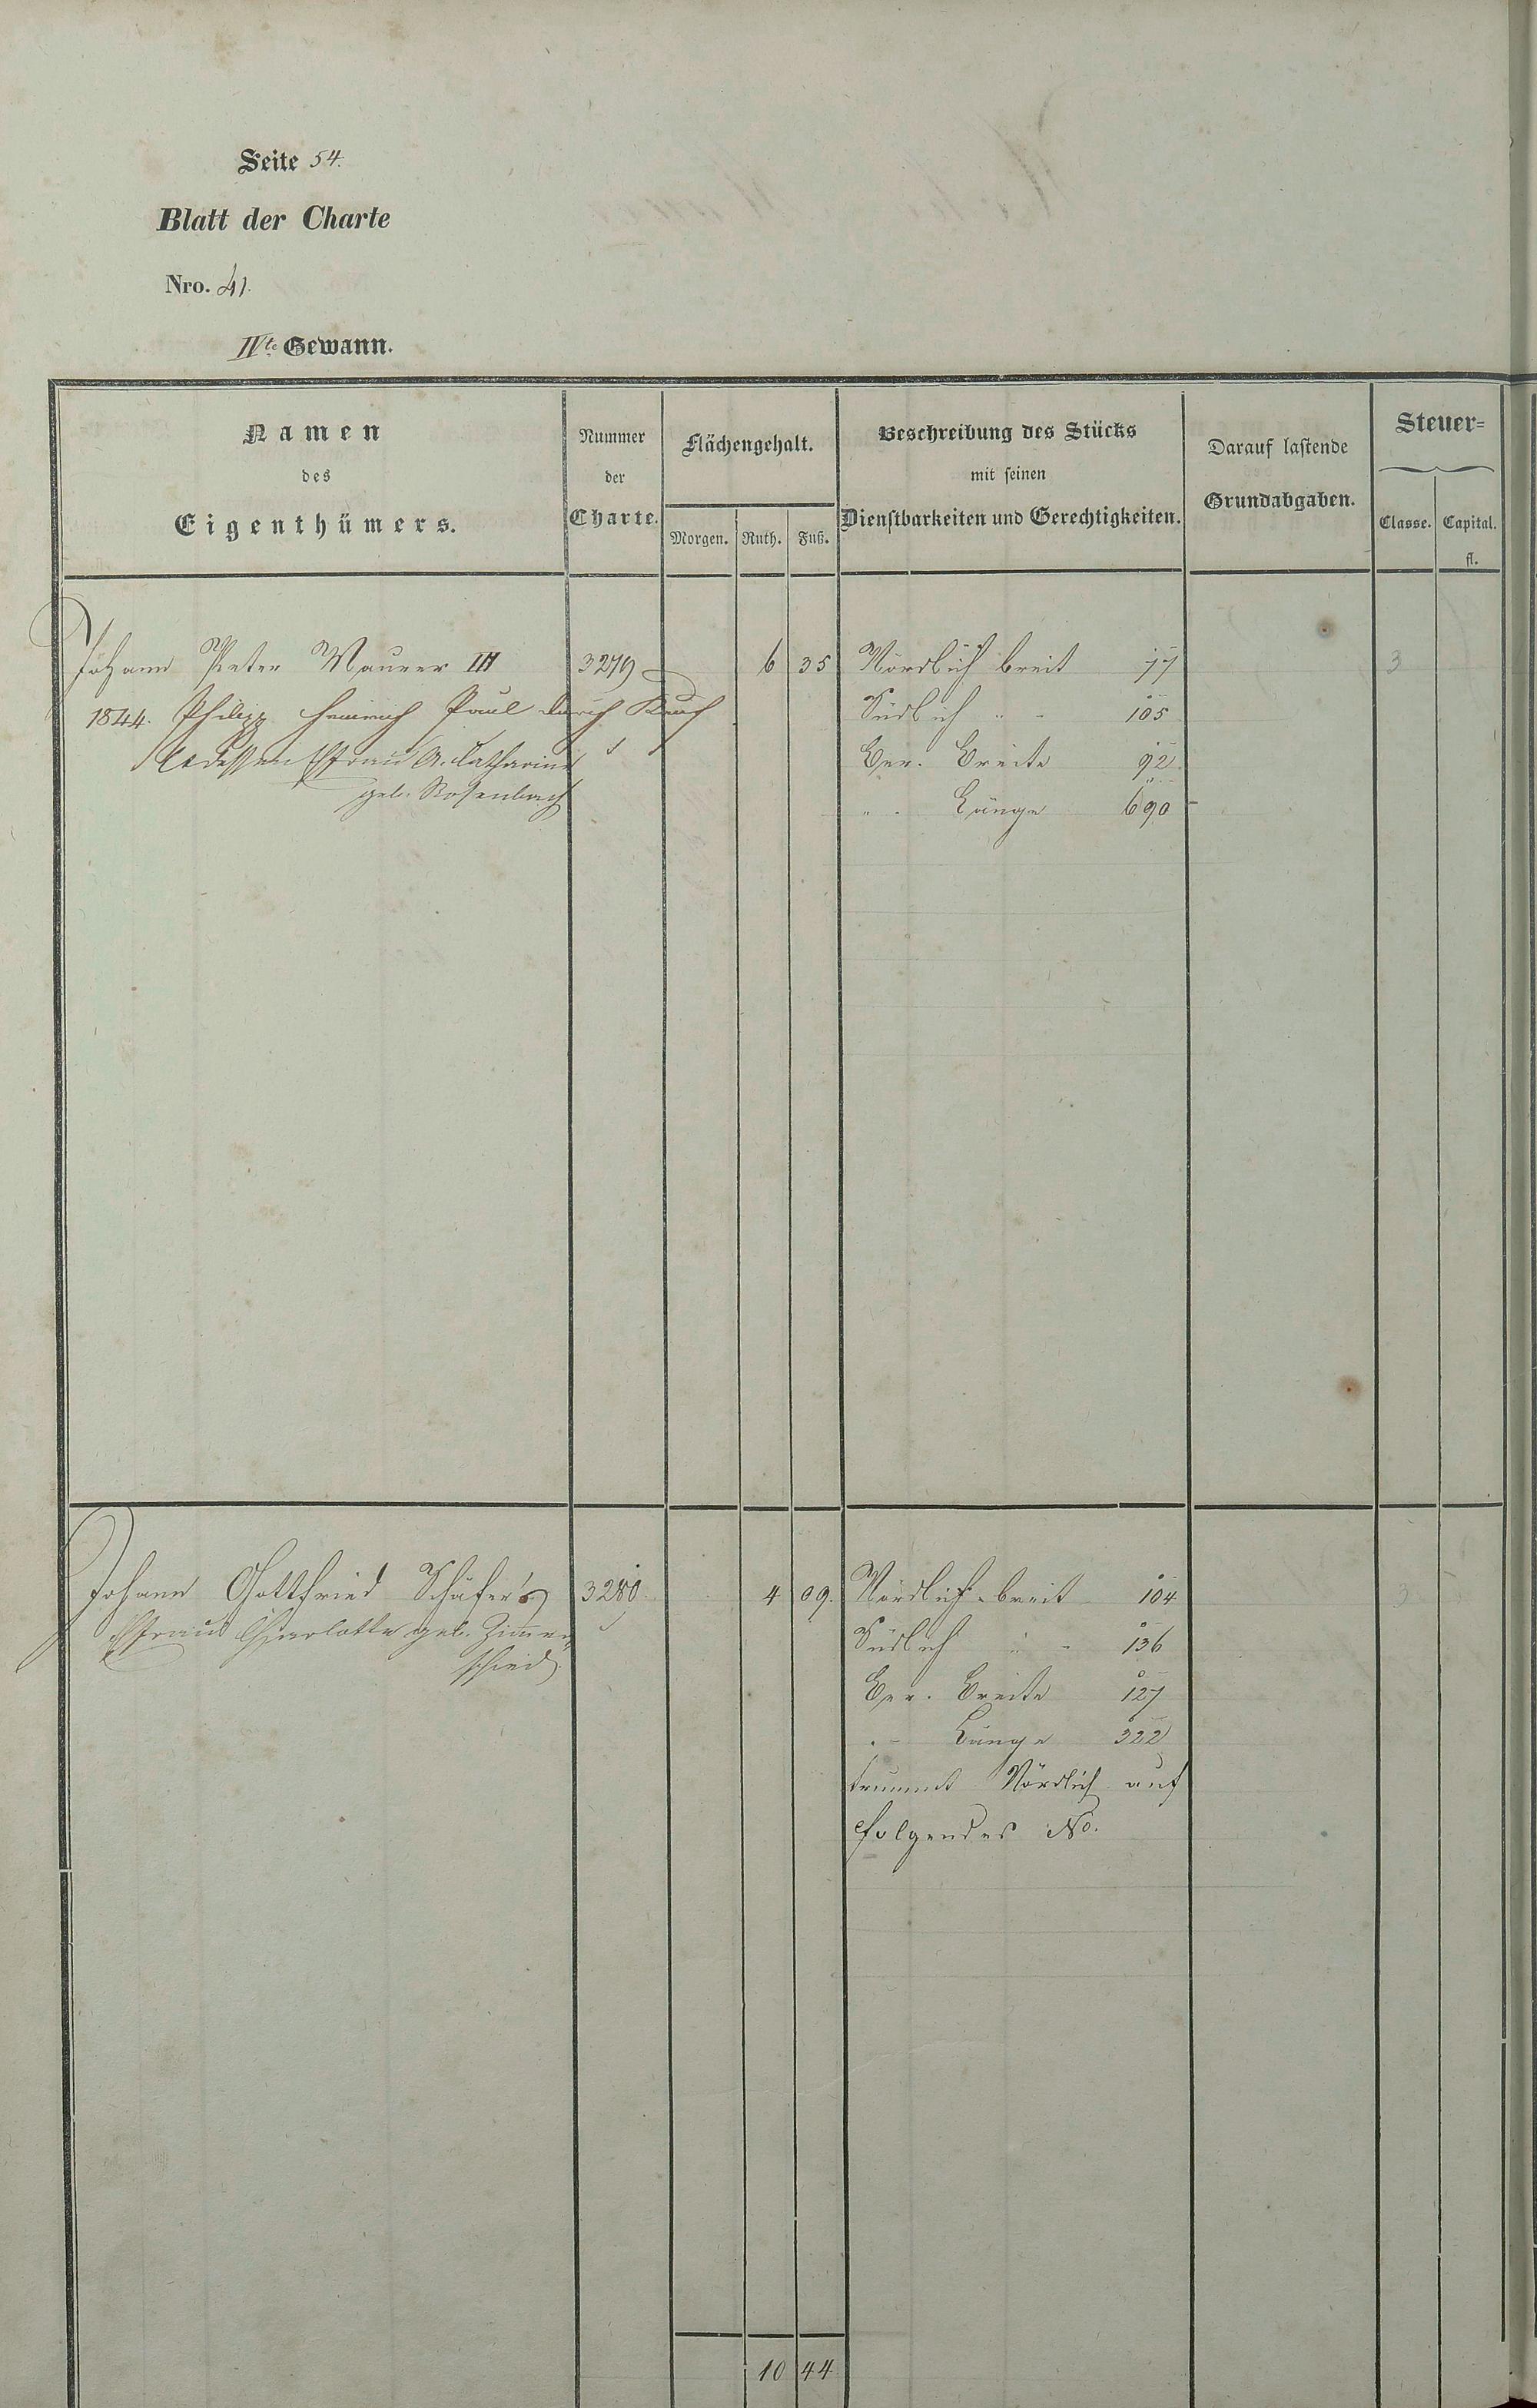 Seite 54.
Blatt der Charte
Nro. 41.
IVte Gewann.
Namen
des
Eigenthümers.
Nummer
der
Charte.
Flächengehalt.
Morgen. Ruth. Fuß.
Beschreibung des Stücks
mit seinen
Dienstbarkeiten und Gerechtigkeiten.
Darauf lastende
Grundabgaben.
Steuer=
Classe. Capital.
fl.
Johann Peter Maurer III 3279 6 35 Nördlich breit 77 3
1844. Philipp Heinrich Paul durch Kauf Südlich " - 105
dessen Efrau A. Catharine Ber. Breite 92
geb. Rosenbach " - Länge 690
Johann Gottfried Schäfer's 3280. 4 09. Nördlich breit 104 3
Efrau Charlotte geb. Zimmer- Südlich " - 136
schied. Ber. Breite 127
" - Länge 322
Nördlich auf
folgendes No.
10 44